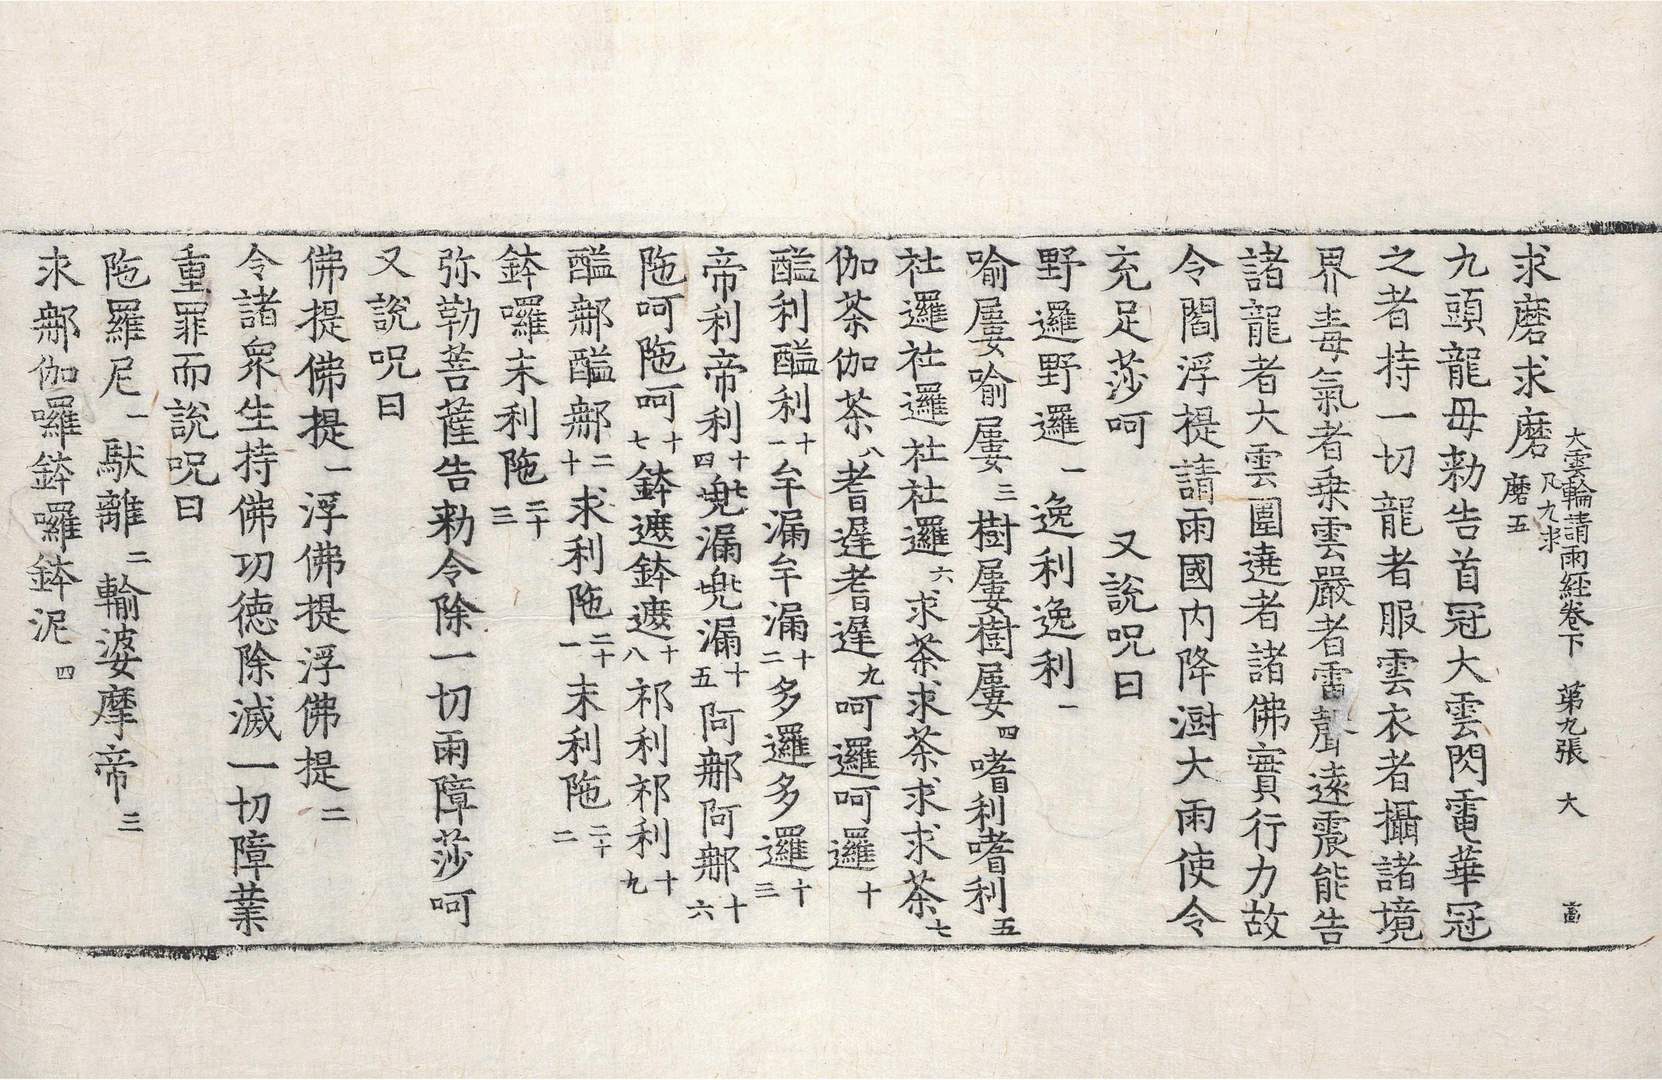 大雲輪請雨經卷下 第九張 大
求磨求磨凡九求磨五
九頭龍毋勑告首冠大雲閃電華冠
之者持一切龍者服雲衣者攝諸境
界毒氣者乗雲嚴者雷聲遠震能告
諸龍者大雲圍遶者諸佛實行力故
令閻浮提請雨國内降澍大雨使令
充足莎呵 又說呪曰
野邏野邏一逸利逸利一
喻屢喻屢三樹屢樹屢四嗜利嗜利五
社邏社邏社社邏六求荼求荼求求荼七
伽荼伽荼八耆遅耆遅九呵邏呵邏十
醯利醯利十一牟漏牟漏十二多邏多邏十三
帝利帝利十四兠漏兠漏十五阿那阿那十六
陁呵陁呵十七鉢遮鉢遮十八祁利祁利十九
醯那醯那二十求利陁二十一末利陁二十二
鉢囉末利陁二十三
弥勒菩薩告勑令除一切雨障莎呵
又說呪曰
佛提佛提一浮佛提浮佛提二
令諸衆生持佛功德除滅一切障業
重罪而說呪曰
陁羅尼一馱離二輸婆摩帝三
求那伽囉鉢囉鉢泥四